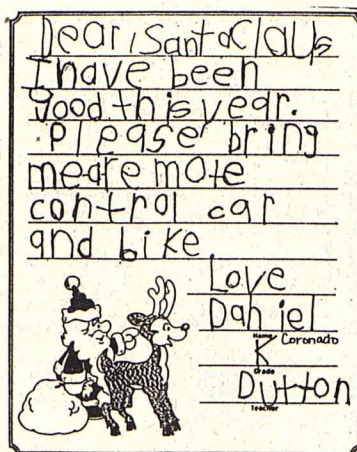 Dear, Santa Claus
I have been
good this year.
Please bring
me a remote
control car
and bike
Love
Daniel
Name Coronado
K
Grade
Dutton
Teacher